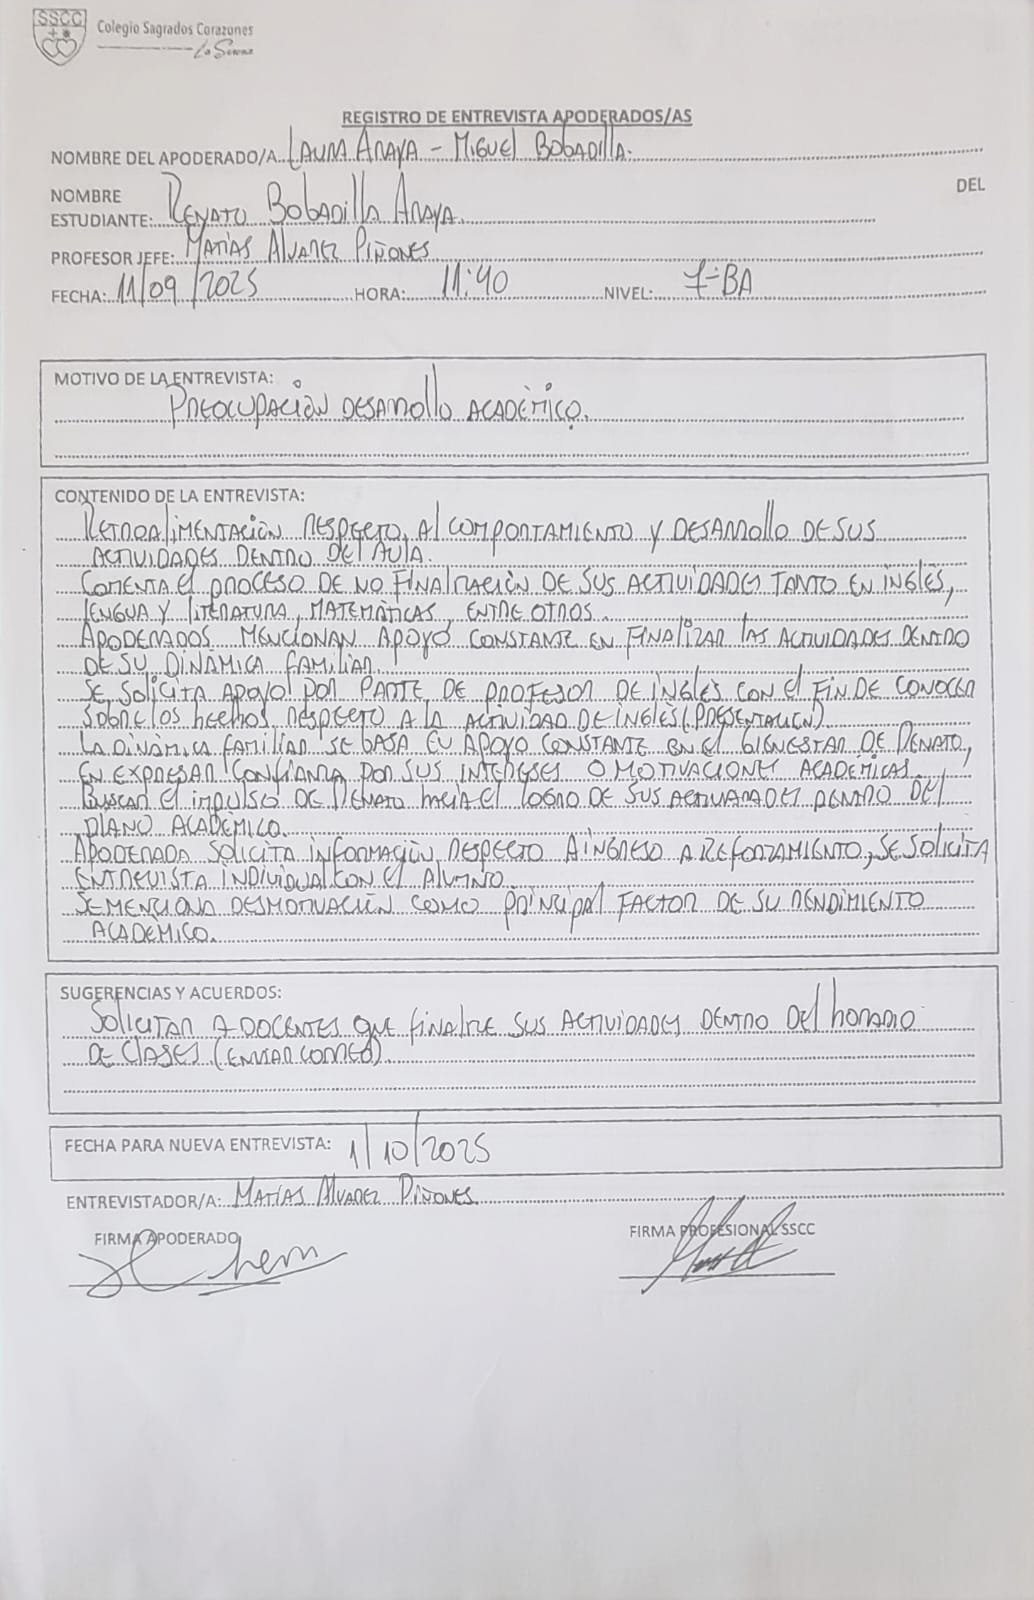 SSCC
Colegio Sagrados Corazones
La Serena
REGISTRO DE ENTREVISTA APODERADOS/AS
NOMBRE DEL APODERADO/A LAURA ARAYA - MIGUEL BOBADILLA.
NOMBRE DEL
ESTUDIANTE: RENATO BOBADILLA ARAYA.
PROFESOR JEFE: MATÍAS ALVAREZ PIÑONES
FECHA: 11/09/2025 HORA: 11:40 NIVEL: 7°BA
MOTIVO DE LA ENTREVISTA:
PREOCUPACIÓN DESARROLLO ACADÉMICO.
CONTENIDO DE LA ENTREVISTA:
RETROALIMENTACIÓN RESPECTO AL COMPORTAMIENTO Y DESARROLLO DE SUS
ACTIVIDADES DENTRO DEL AULA.
COMENTA EL PROCESO DE NO FINALIZACIÓN DE SUS ACTIVIDADES TANTO EN INGLÉS,
LENGUA Y LITERATURA, MATEMÁTICAS, ENTRE OTROS.
APODERADOS MENCIONAN APOYO CONSTANTE EN FINALIZAR LAS ACTIVIDADES DENTRO
DE SU DINÁMICA FAMILIAR.
SE SOLICITA APOYO POR PARTE DE PROFESOR DE INGLÉS CON EL FIN DE CONOCER
SOBRE LOS HECHOS RESPECTO A LA ACTIVIDAD DE INGLÉS (PRESENTACIÓN)
LA DINÁMICA FAMILIAR SE BASA EN APOYO CONSTANTE EN EL BIENESTAR DE RENATO,
EN EXPRESAR CONFIANZA POR SUS INTERESES O MOTIVACIONES ACADÉMICAS.
BUSCAN EL IMPULSO DE RENATO HACIA EL LOGRO DE SUS ACTIVIDADES DENTRO DEL
PLANO ACADÉMICO.
APODERADA SOLICITA INFORMACIÓN RESPECTO A INGRESO A REFORZAMIENTO, SE SOLICITA
ENTREVISTA INDIVIDUAL CON EL ALUMNO.
SE MENCIONA DESMOTIVACIÓN COMO PRINCIPAL FACTOR DE SU RENDIMIENTO
ACADÉMICO.
SUGERENCIAS Y ACUERDOS:
SOLICITAR A DOCENTES QUE FINALICE SUS ACTIVIDADES DENTRO DEL HORARIO
DE CLASES (ENVIAR CORREO)
FECHA PARA NUEVA ENTREVISTA: 1/10/2025
ENTREVISTADOR/A: MATÍAS ALVAREZ PIÑONES
FIRMA APODERADO FIRMA PROFESIONAL SSCC